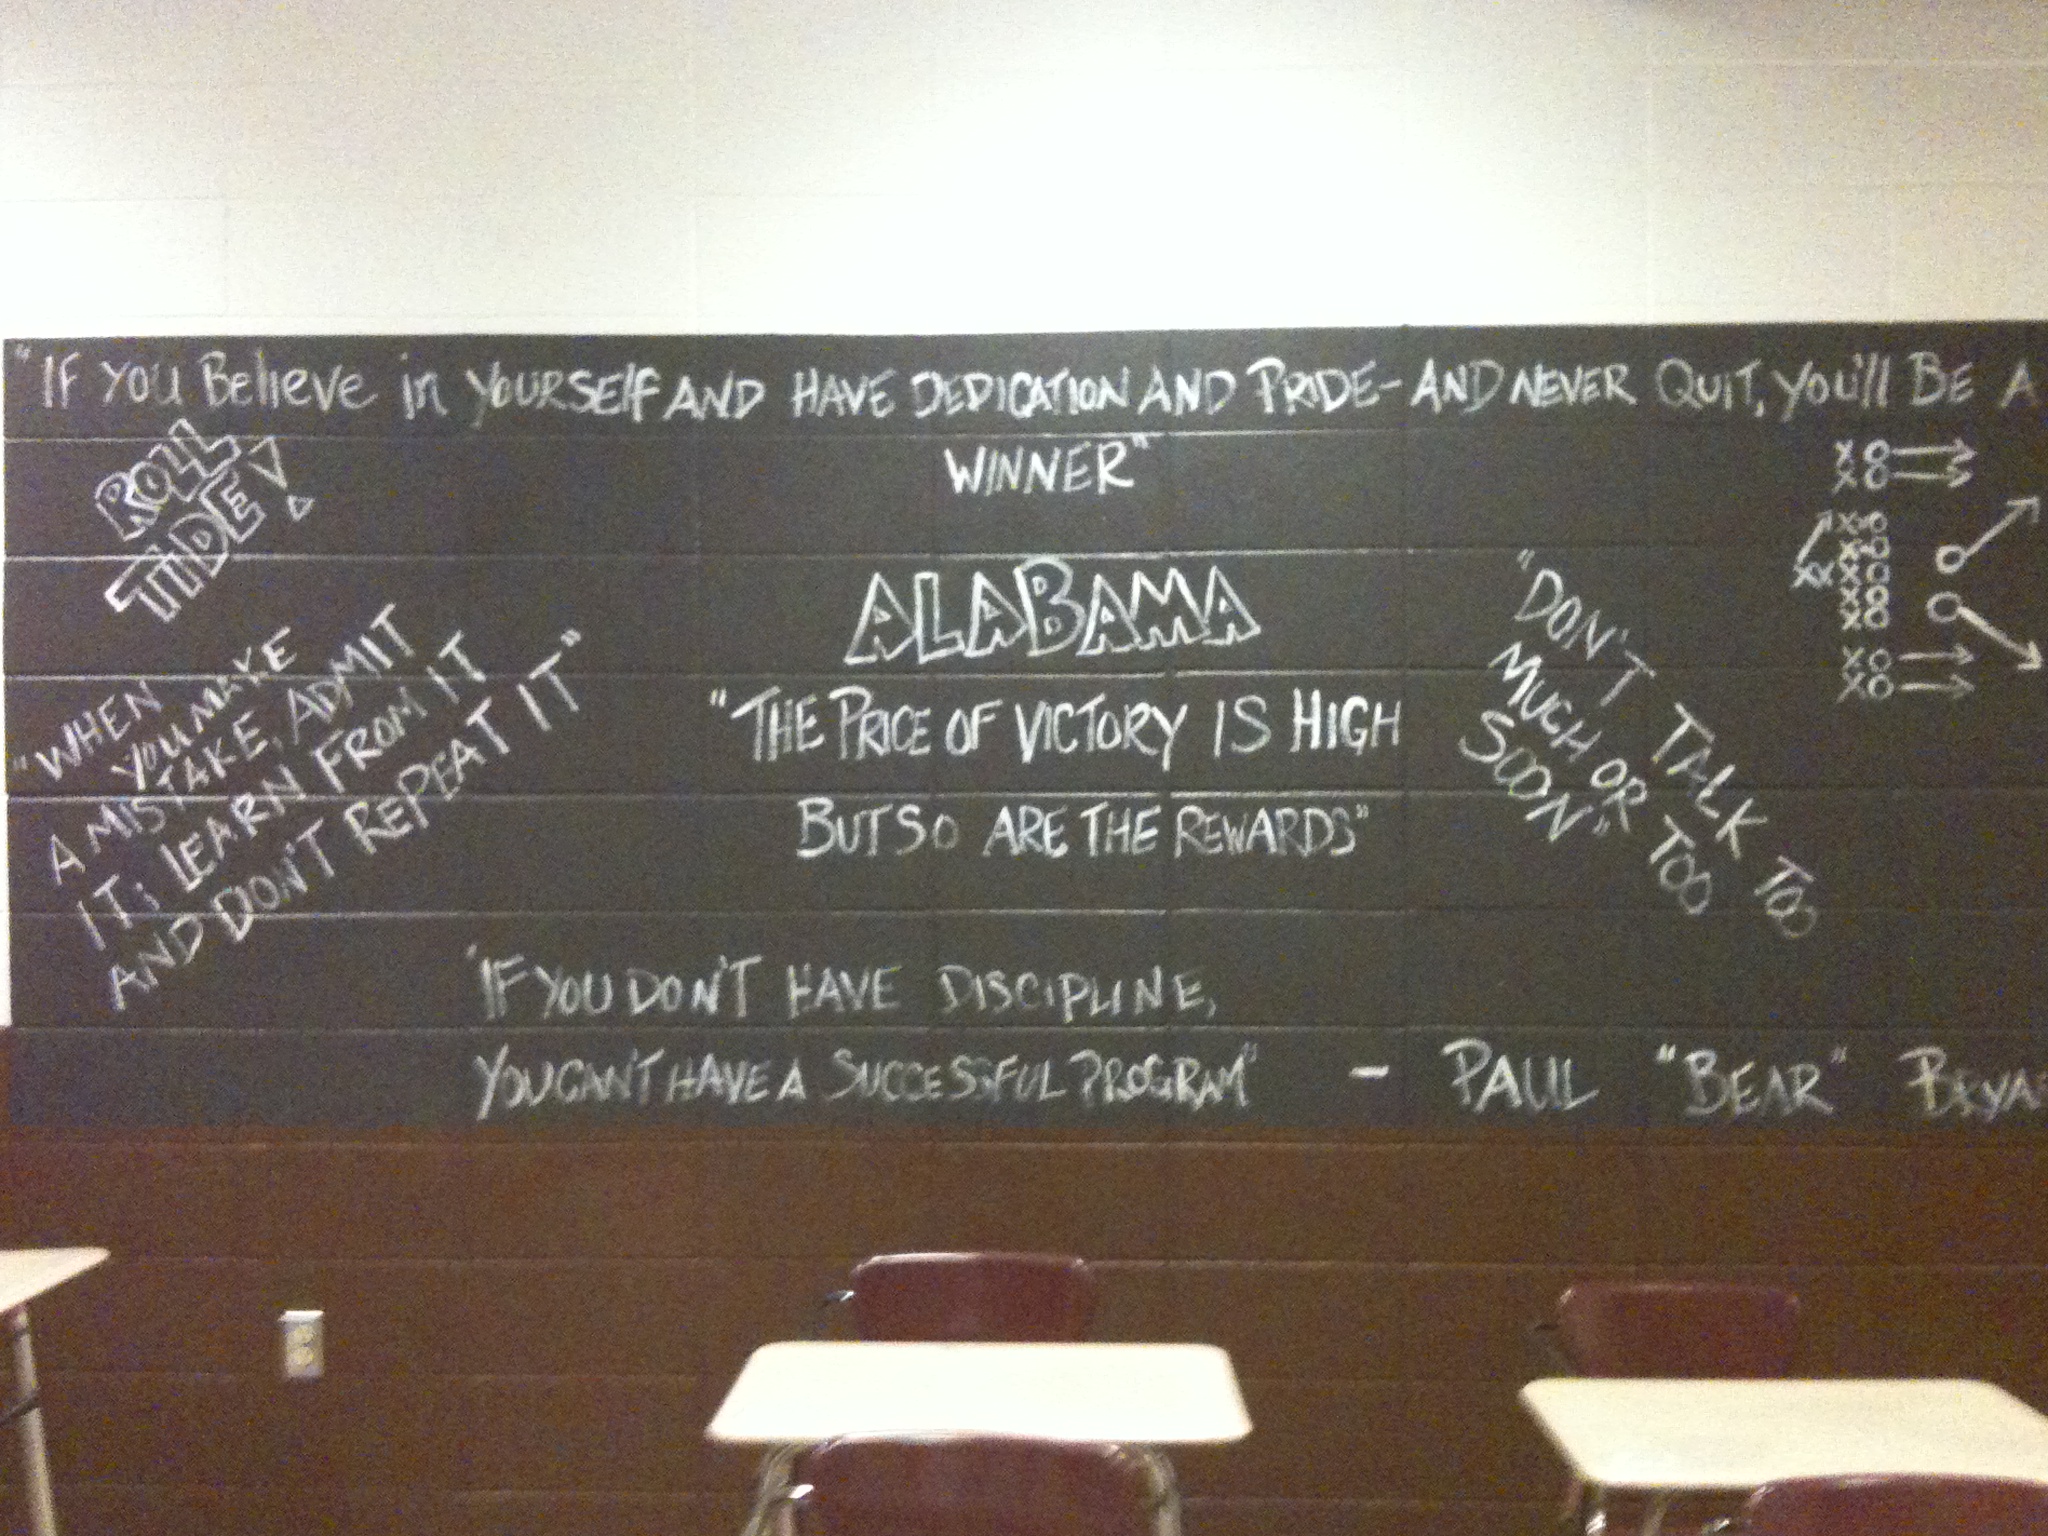 "IF YOU Believe in YOURSElf AND HAVE DEDICATION AND PRIDE- AND NEVER QUIT, YOU'll BE A
WINNER"
ROLL
TIDE!
ALABAMA
"THE PRICE OF VICTORY IS HIGH
BUT SO ARE THE REWARDS"
"WHEN
YOU MAKE
A MISTAKE, ADMIT
IT; LEARN FROM IT
AND DON'T REPEAT IT"
"DON'T TALK TOO
MUCH OR TOO
SOON"
"IF YOU DON'T HAVE DISCIPLINE,
YOU CAN'T HAVE A SUCCESSFUL PROGRAM" - PAUL "BEAR" BRYA